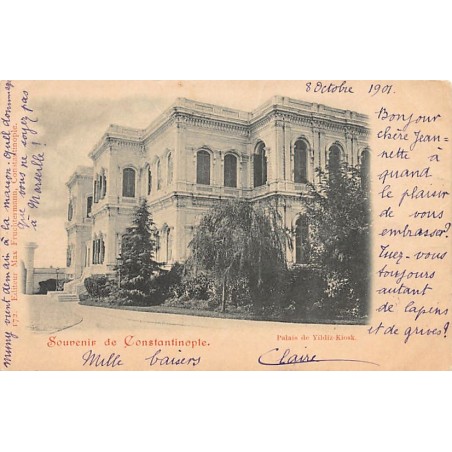 8 Octobre 1901.
Bonjour
chère Jean-
nette à
quand
le plaisir
de vous
embrasser?
Tuez-vous
toujours
autant
de lapins
et de grives?
Mimy vient demain à la maison. Quel dommage
que vous ne soyez pas
à Marseille!
172. Editeur Max Fruchtermann, Constantinople.
Souvenir de Constantinople.
Palais de Yildiz-Kiosk.
Mille baisers
Claire